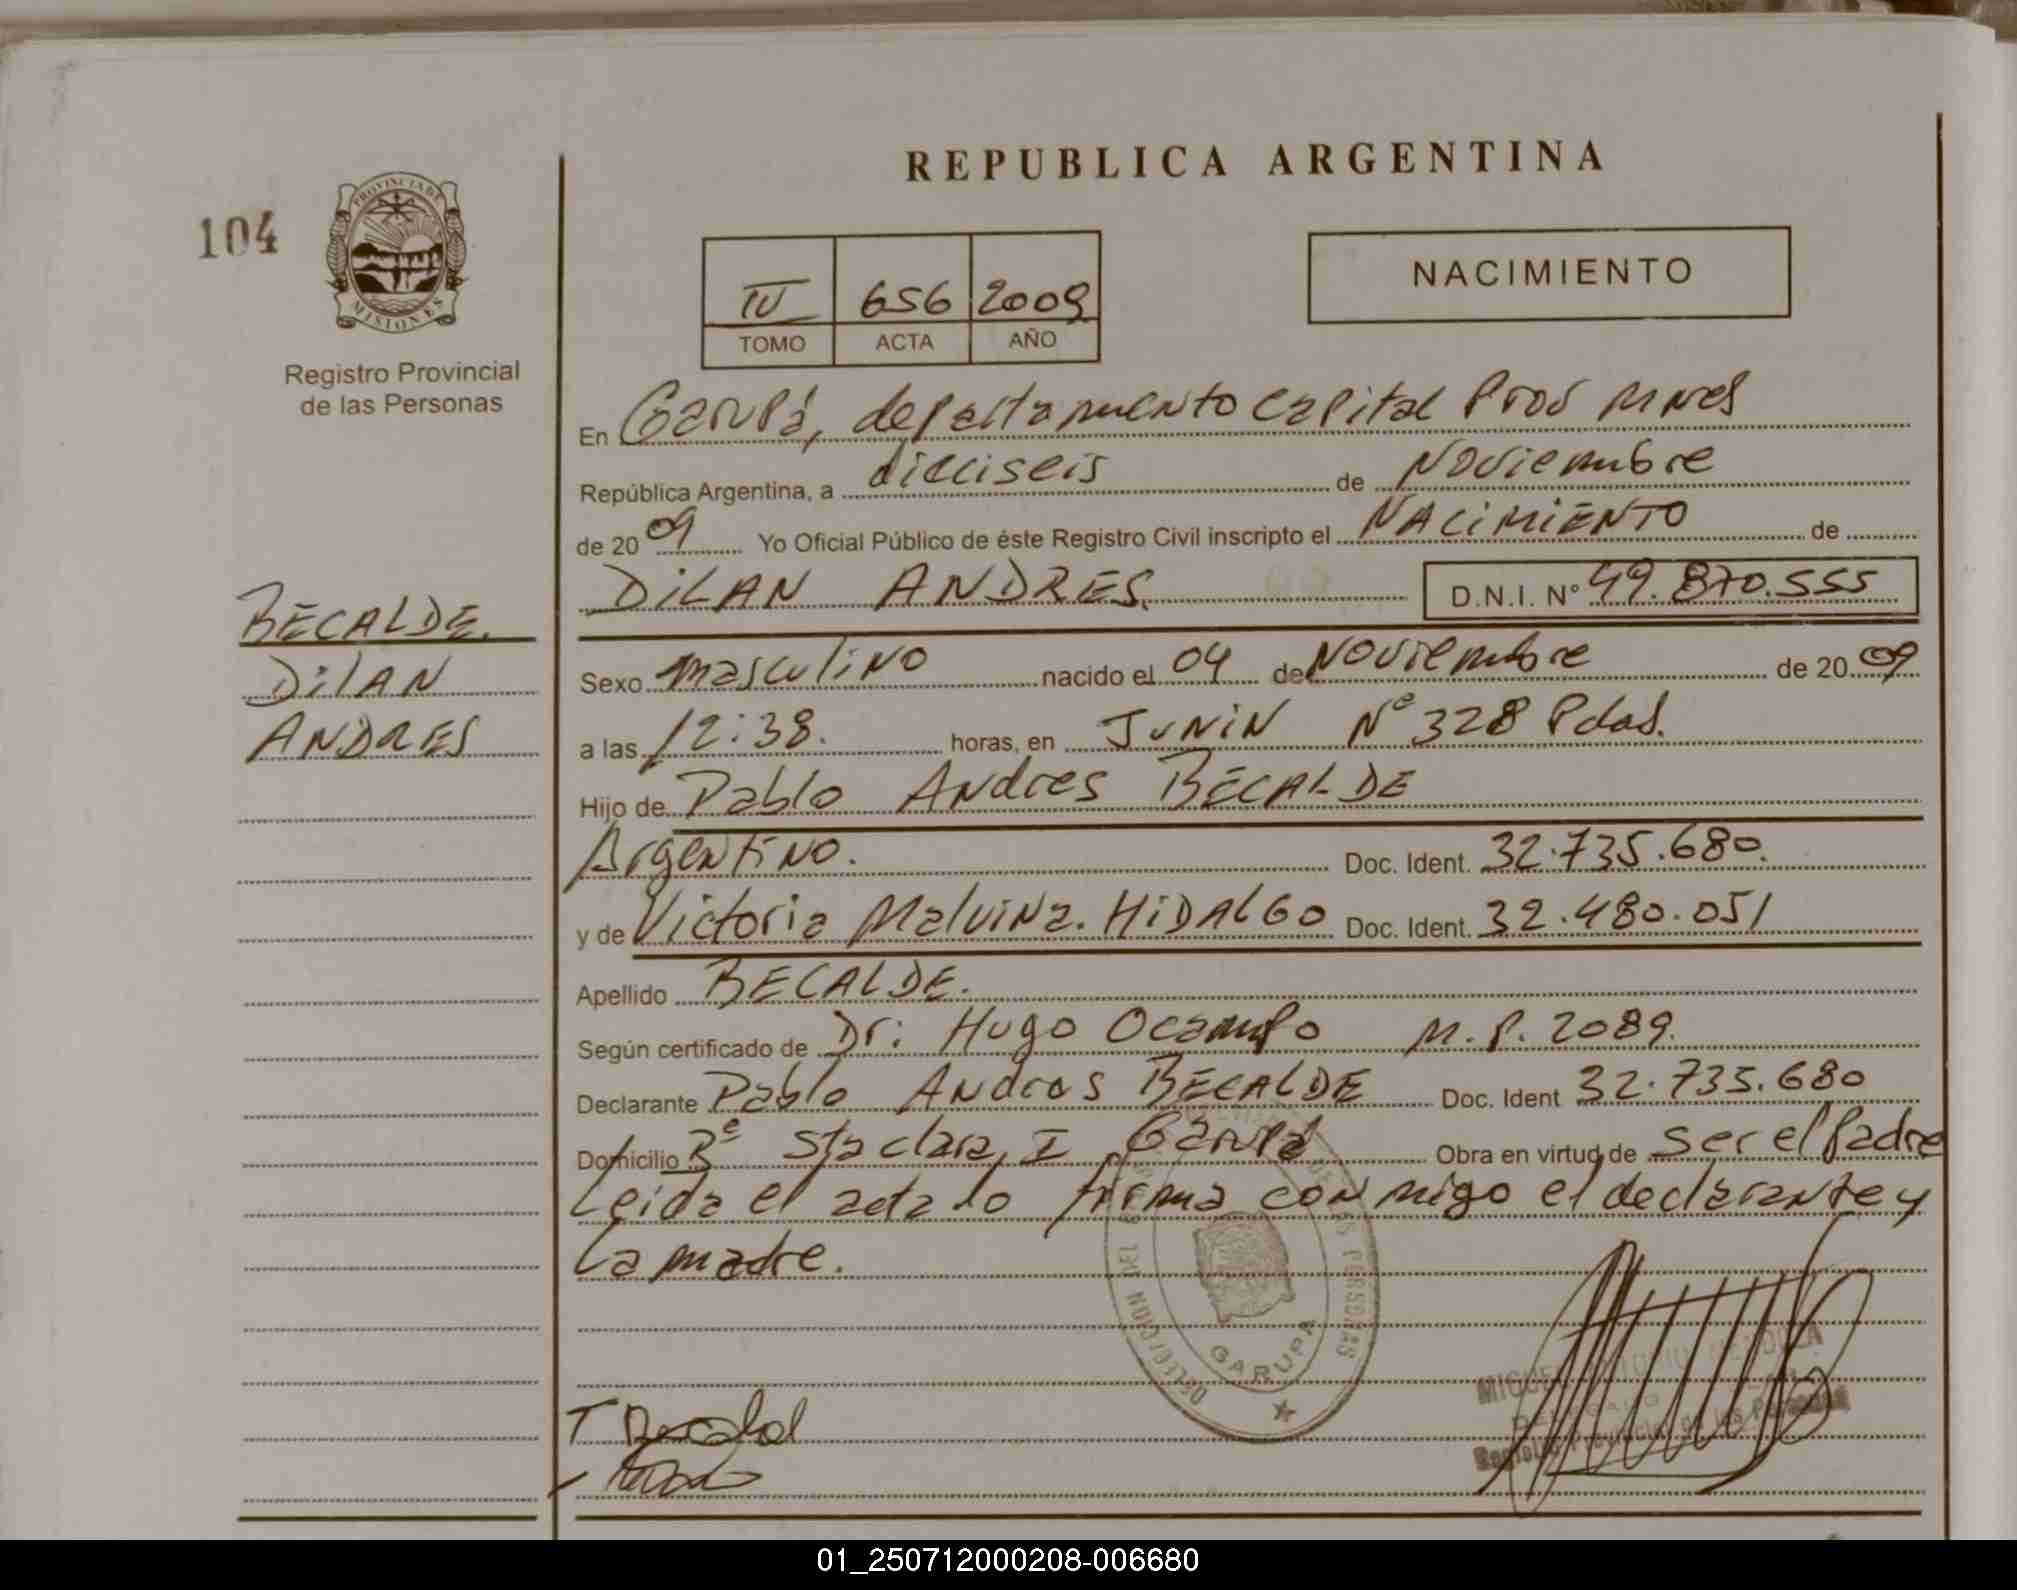 REPUBLICA ARGENTINA
104
PROVINCIA DE
MISIONES
Registro Provincial
de las Personas
IV 656 2009
TOMO ACTA AÑO
NACIMIENTO
En Garupá, departamento capital Prov Mnes
República Argentina, a dieciseis de Noviembre
de 2009 Yo Oficial Público de éste Registro Civil inscripto el NACIMIENTO de
DILAN ANDRES. D.N.I. Nº 49.870.555
BECALDE.
DILAN
ANDRES
Sexo masculino nacido el 04 de Noviembre de 2009
a las 12:38. horas, en JUNIN Nº 328 Pdas.
Hijo de Pablo Andres BECALDE
Argentino. Doc. Ident. 32.735.680.
y de Victoria Malvina. HIDALGO Doc. Ident. 32.480.051
Apellido BECALDE.
Según certificado de Dr: Hugo Ocampo M.P. 2089.
Declarante Pablo Andres BECALDE Doc. Ident 32.735.680
Domicilio Bº Sta clara I Garupá Obra en virtud de ser el Padre
Leida el acta lo firma conmigo el declarante y
La madre.
DELEGACION DEL DE LAS PERSONAS
GARUPA
MIGUEL ANTONIO MENDOZA
DELEGADO
Registro Provincial de las Personas
01_250712000208-006680